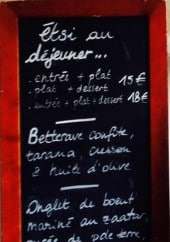 Etsi au
déjeuner...
. entrée + plat 15€
. plat + dessert
. entrée + plat + dessert 18€
Betterave Confite,
tarama, Cresson
& huile d'olive
Onglet de boeuf
mariné au zaatar,
purée de pde terre,